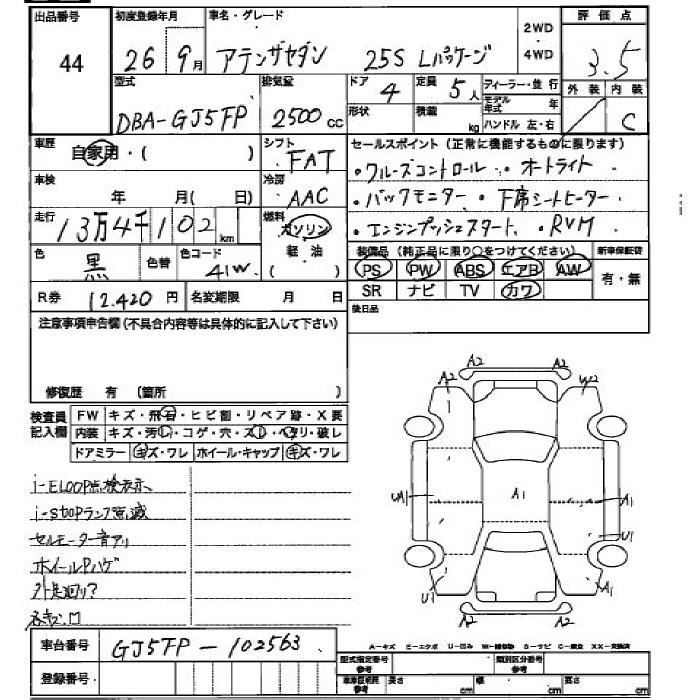 出品番号 初度登録年月 車名・グレード 2WD・4WD 評価点
44 26 9月 アテンザセダン 25S Lパッケージ 3.5
型式 排気量 ドア 4 定員 5人 フィーラー・並行 外装 内装
DBA-GJ5FP 2500cc 形状 積載 kg モデル年式 年 ハンドル 左・右 C
車歴 自家用・( ) シフト FAT セールスポイント(正常に機能するものに限ります)
・クルーズコントロール ・オートライト
車検 年 月(日) 冷房 AAC ・バックモニター ・下席シートヒーター
走行 13万4千102km 燃料 ガソリン 軽油 ( ) ・エンジンプッシュスタート ・RVM
色 黒 色替 色コード 41W 装備品(純正品に限り○をつけてください) 新車保証書
PS PW ABS エアB AW 有・無
R券 12,420円 名変期限 月 日 SR ナビ TV カワ
注意事項申告欄(不具合内容等は具体的に記入して下さい) 後日品
修復歴 有 (箇所 )
検査員記入欄 FW キズ・飛石・ヒビ割・リペア跡・X要
内装 キズ・汚レ・コゲ・穴・スレ・ヘタリ・破レ
ドアミラー キズ・ワレ ホイール・キャップ キズ・ワレ
i-ELOOP点検表示
i-stopランプ点滅
セルモーター音アリ
ホイールPハゲ
A2 A2
A2 W2
UA1 A1 A1
U1
U1 A2
A2 A2
A-キズ E-エクボ U-凹み W-補修跡 S-サビ C-腐食 XX-交換済
車台番号 GJ5FP-102563
登録番号
型式指定番号 参考 類別区分番号 参考
車車証明用 参考 長さ cm 幅 cm 高さ cm